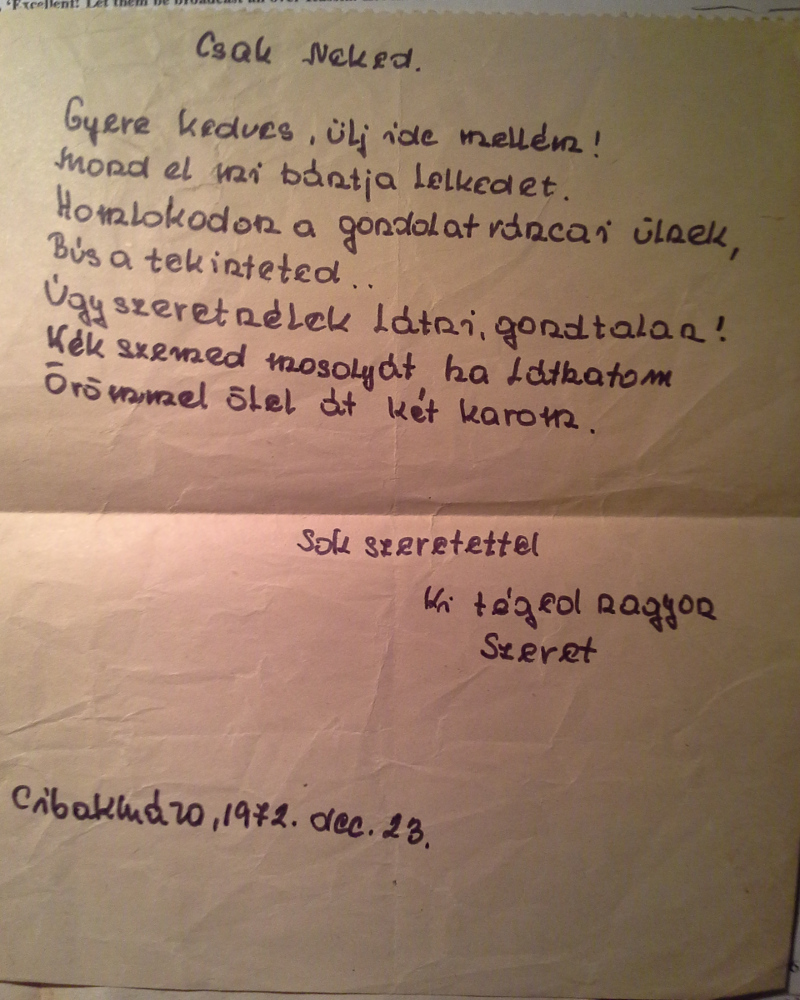 'Excellent! Let them be broadcast all over
Csak Neked.
Gyere kedves, ülj ide mellém!
Mond el mi bántja lelkedet.
Homlokodon a gondolat ráncai ülnek,
Bús a tekinteted..
Úgy szeretnélek látni, gondtalan!
Kék szemed mosolyát, ha láthatom
Örömmel ölel át két karom.
Sok szeretettel
Ki téged nagyon
Szeret
Cibakháza, 1972. dec. 23.